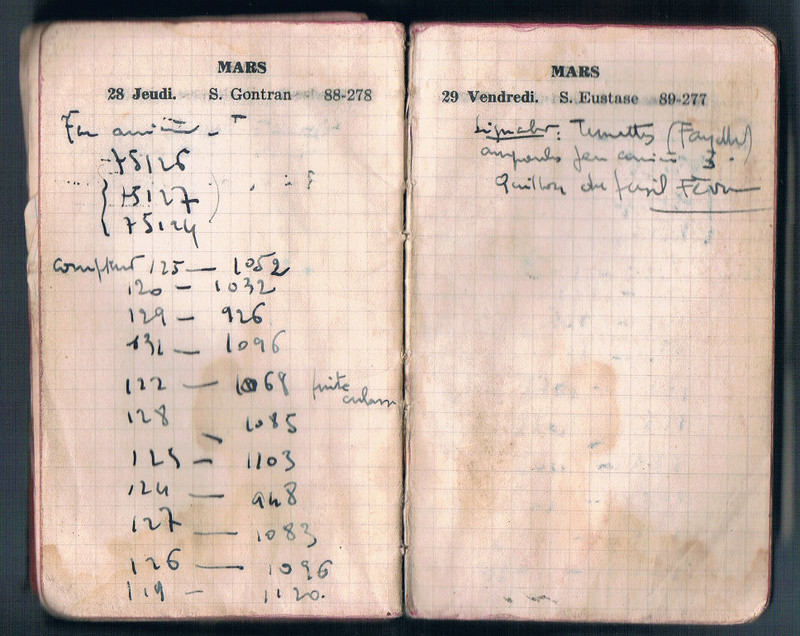 MARS
28 Jeudi. S. Gontran 88-278
Feu arrière -
75126
75127
75124
compteur 125 — 1052
120 — 1032
129 — 926
131 — 1096
122 — 1068 fuite culasse
128 — 1085
125 — 1103
124 — 948
127 — 1083
126 — 1096
119 — 1120.
MARS
29 Vendredi. S. Eustase 89-277
Signaler :
ampoules feu arrière 3.
du fusil